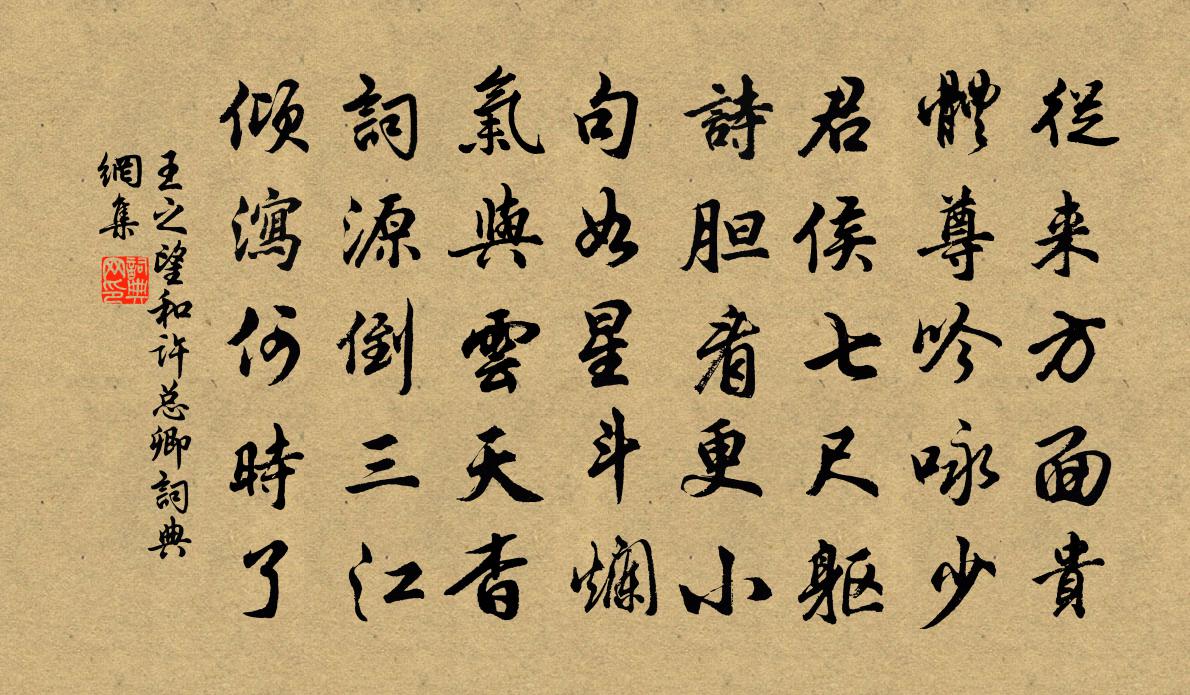 從来方面貴
體尊吟咏少
君侯七尺軀
詩胆看更小
句如星斗爛
氣與雲天杳
詞源倒三江
傾瀉何時了
王之望和许总卿詞典
網集
詞典
网印